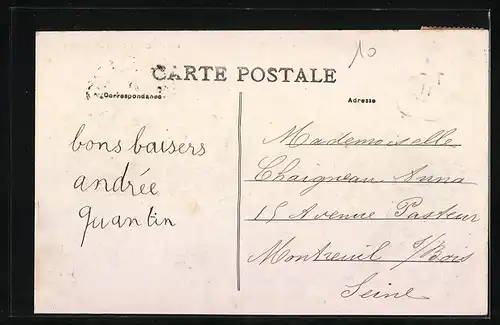 10
CARTE POSTALE
Correspondance
Adresse
bons baisers
andrée
quantin
Mademoiselle
Chaigneau Anna
15 Avenue Pasteur
Montreuil s/Bois
Seine